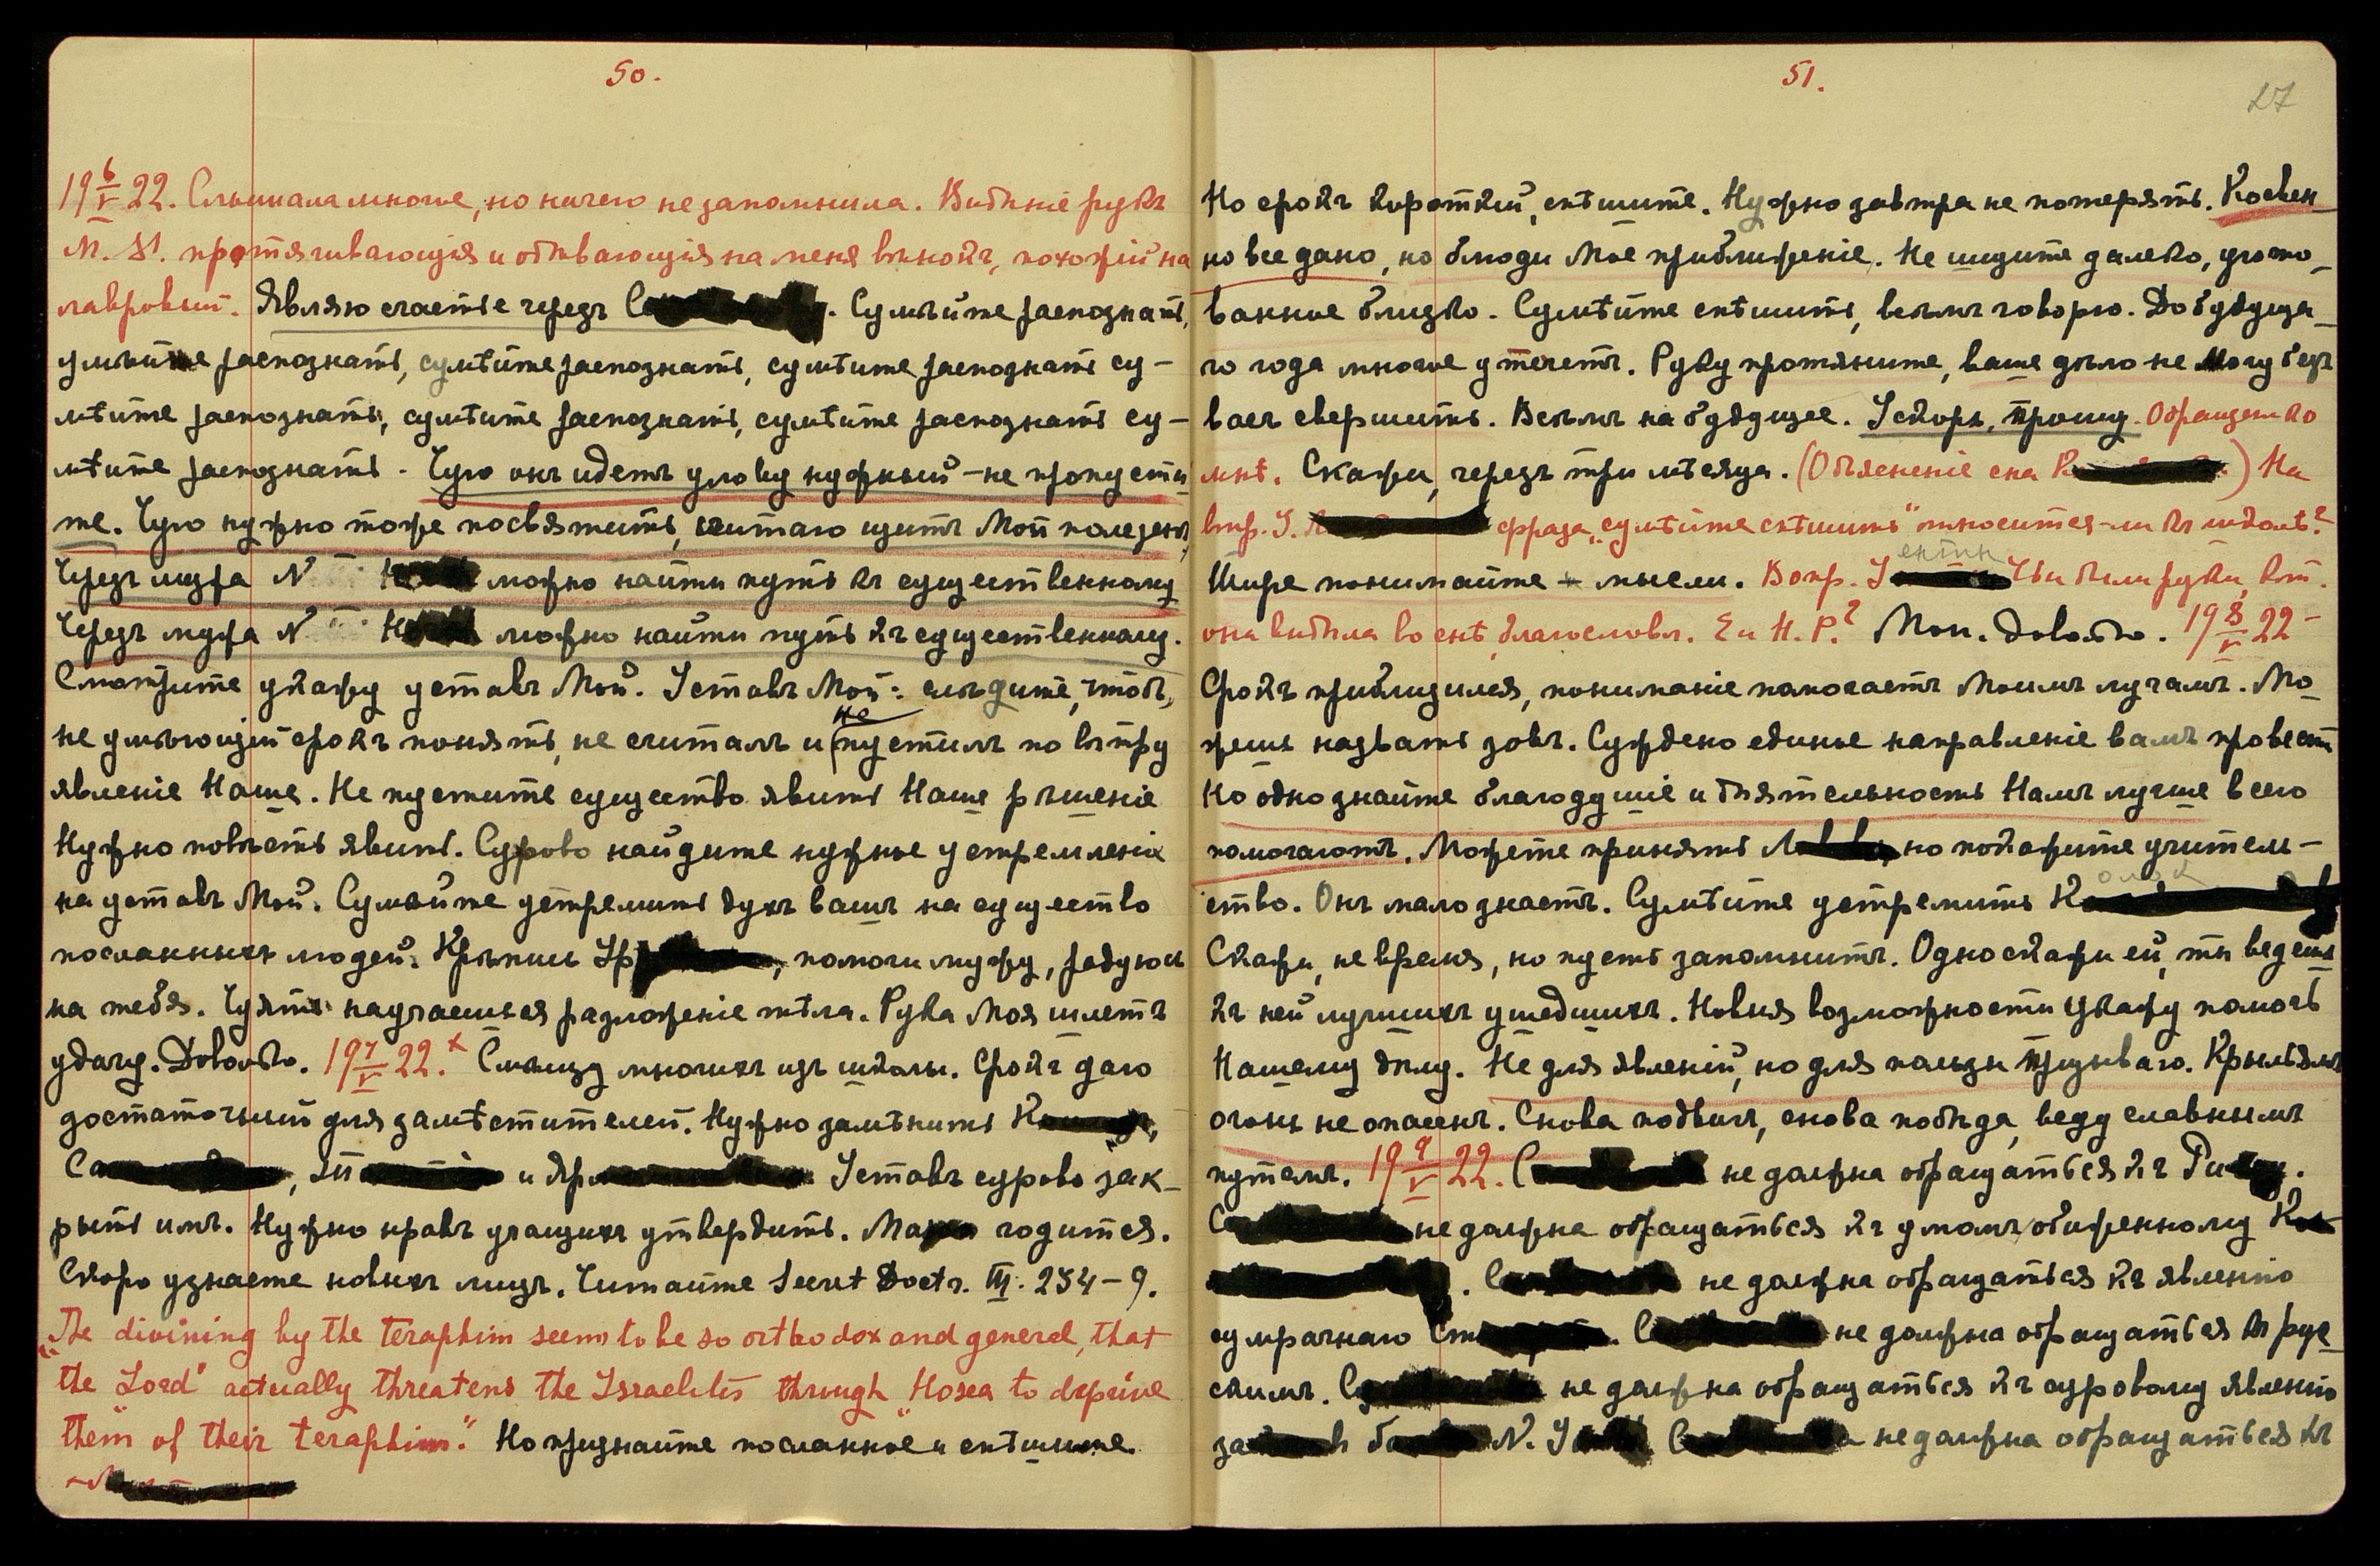 50.
19 6/V 22. Слышала многое, но ничего не запомнила. Видѣніе рукъ
М. М. протягивающія и обвивающія на меня вѣнокъ, похожій на
лавровый. Являю счастье черезъ С. Сумѣйте распознать,
умѣйте распознать, сумѣйте распознать, сумѣйте распознать су-
мѣйте распознать, сумѣйте распознать, сумѣйте распознать су-
мѣйте распознать. Чую онъ идетъ улову нужный – не пропусти
те. Чую нужно тоже посвятить, считаю щитъ Мой полезенъ,
Черезъ мужа N можно найти путь къ существенному
Черезъ мужа N можно найти путь къ существенному.
Смотрите укажу уставъ Мой. Уставъ Мой: слѣдите, чтобъ,
не умѣющій срокъ понять, не считалъ и не пустилъ по вѣтру
явленіе Наше. Не пустите существо явить Наше рѣшеніе
Нужно повѣсть явить. Сурово найдите нужные устремленія
на уставъ Мой. Сумѣйте устремить духъ вашъ на существо
посланныхъ людей. Крѣпись Ур, помоги мужу, радуюсь
на тебя. Чуять научаешься разложеніе тѣла. Рука Моя шлетъ
удачу. Довольно. 19 7/V 22.× Смѣщу многихъ изъ школы. Срокъ даю
достаточный для замѣстителей. Нужно замѣнить К
Са, и Яр Уставъ сурово зак-
рыть имъ. Нужно правъ учащихъ утвердить. годится.
Скоро узнаете новыхъ лицъ. Читайте Secret Doctr. III. 234-9.
„The divining by the teraphim seems to be so orthodox and general, that
the "Lord" actually threatens the Israelites through Hosea to deprive
them of their teraphim." Но признайте посланное и спѣшите.
51.
27
Но срокъ короткій, спѣшите. Нужно завтра не потерять. Косвен-
но все дано, но блюди Мое приближеніе. Не ищите далеко, угото-
ванное близко. Сумѣйте спѣшить, всѣмъ говорю. До будуща-
го года многое утечетъ. Руку протяните, ваше дѣло не Могу безъ
васъ свершить. Всѣмъ на будущее. Ускорь, прошу. Обращен. ко
мнѣ. Скажи, черезъ три мѣсяца. (Объясненіе сна Р) На
впр. У. фраза „сумѣйте спѣшить" относится-ли къ школѣ?
Шире понимайте мысли. Вопр. У Чьи были руки, кот.
она видѣла во снѣ, благословл. Е и Н. Р.? Мои. Довольно. 19 8/V 22 –
Срокъ приблизился, пониманіе помогаетъ Моимъ лучамъ. Мо-
жешь назвать зовъ. Суждено единое направленіе вамъ провести
Но одно знайте благодушіе и дѣятельность Намъ лучше всего
помогаютъ. Можете принять Л но покажите учитель-
ство. Онъ мало знаетъ. Сумѣйте устремить К
Скажи, не время, но пусть запомнитъ. Одно скажи ей, ты ведешь
къ ней лучшихъ ушедшихъ. Новыя возможности укажу помочь
Нашему дѣлу. Не для явленій, но для пользы призываю. Крыльямъ
огонь не опасенъ. Снова подвигъ, снова побѣда, веду славнымъ
путемъ. 19 9/V 22. С не должна обращаться къ Ри.
С не должна обращаться къ умомъ обиженному К
. С не должна обращаться къ явленію
сумрачнаго Ст. С не должна обращаться къ рус-
скимъ. С не должна обращаться къ суровому явленію
за б N. У С а не должна обращаться къ